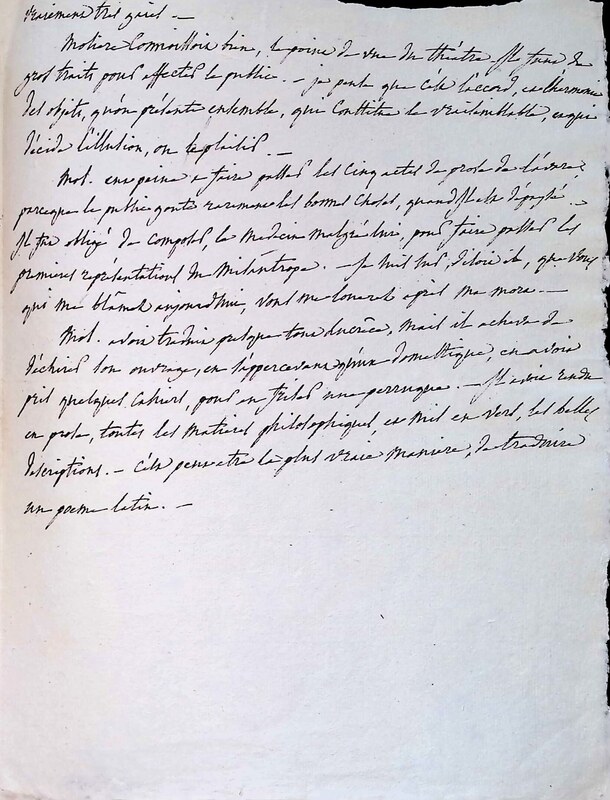 vraiement très gaies. —
Moliere connoissoit bien, le point de vue du théatre. Il faut de
gros traits pour affecter le public. — je pense que c'est l'accord, et l'harmonie
des objets, qu'on présente ensemble, qui constitue le vraisemblable, et qui
décide l'illusion, ou le plaisir. —
Mol. eut peine a faire passer les cinq actes de prose de l'avare,
parceque le public goute rarement les bonnes choses, quand il est dépaysé. —
Il fut obligé de composer, le medecin malgré lui, pour faire passer les
premieres représentations du misantrope. — je suis sur, disoit il, que vous
qui me blâmés aujourdhui, vous me louerés après ma mort. —
Mol. avoit traduit presque tout Lucrèce, mais il acheva de
déchirer son ouvrage, en s'appercevant qu'un domestique, en avoit
pris quelques cahiers, pour en friser une perruque. — Il avoit rendu
en prose, toutes les matieres philosophiques et mis en vers, les belles
descriptions. — C'est peut etre la plus vraie maniere, de traduire
un poeme latin. —